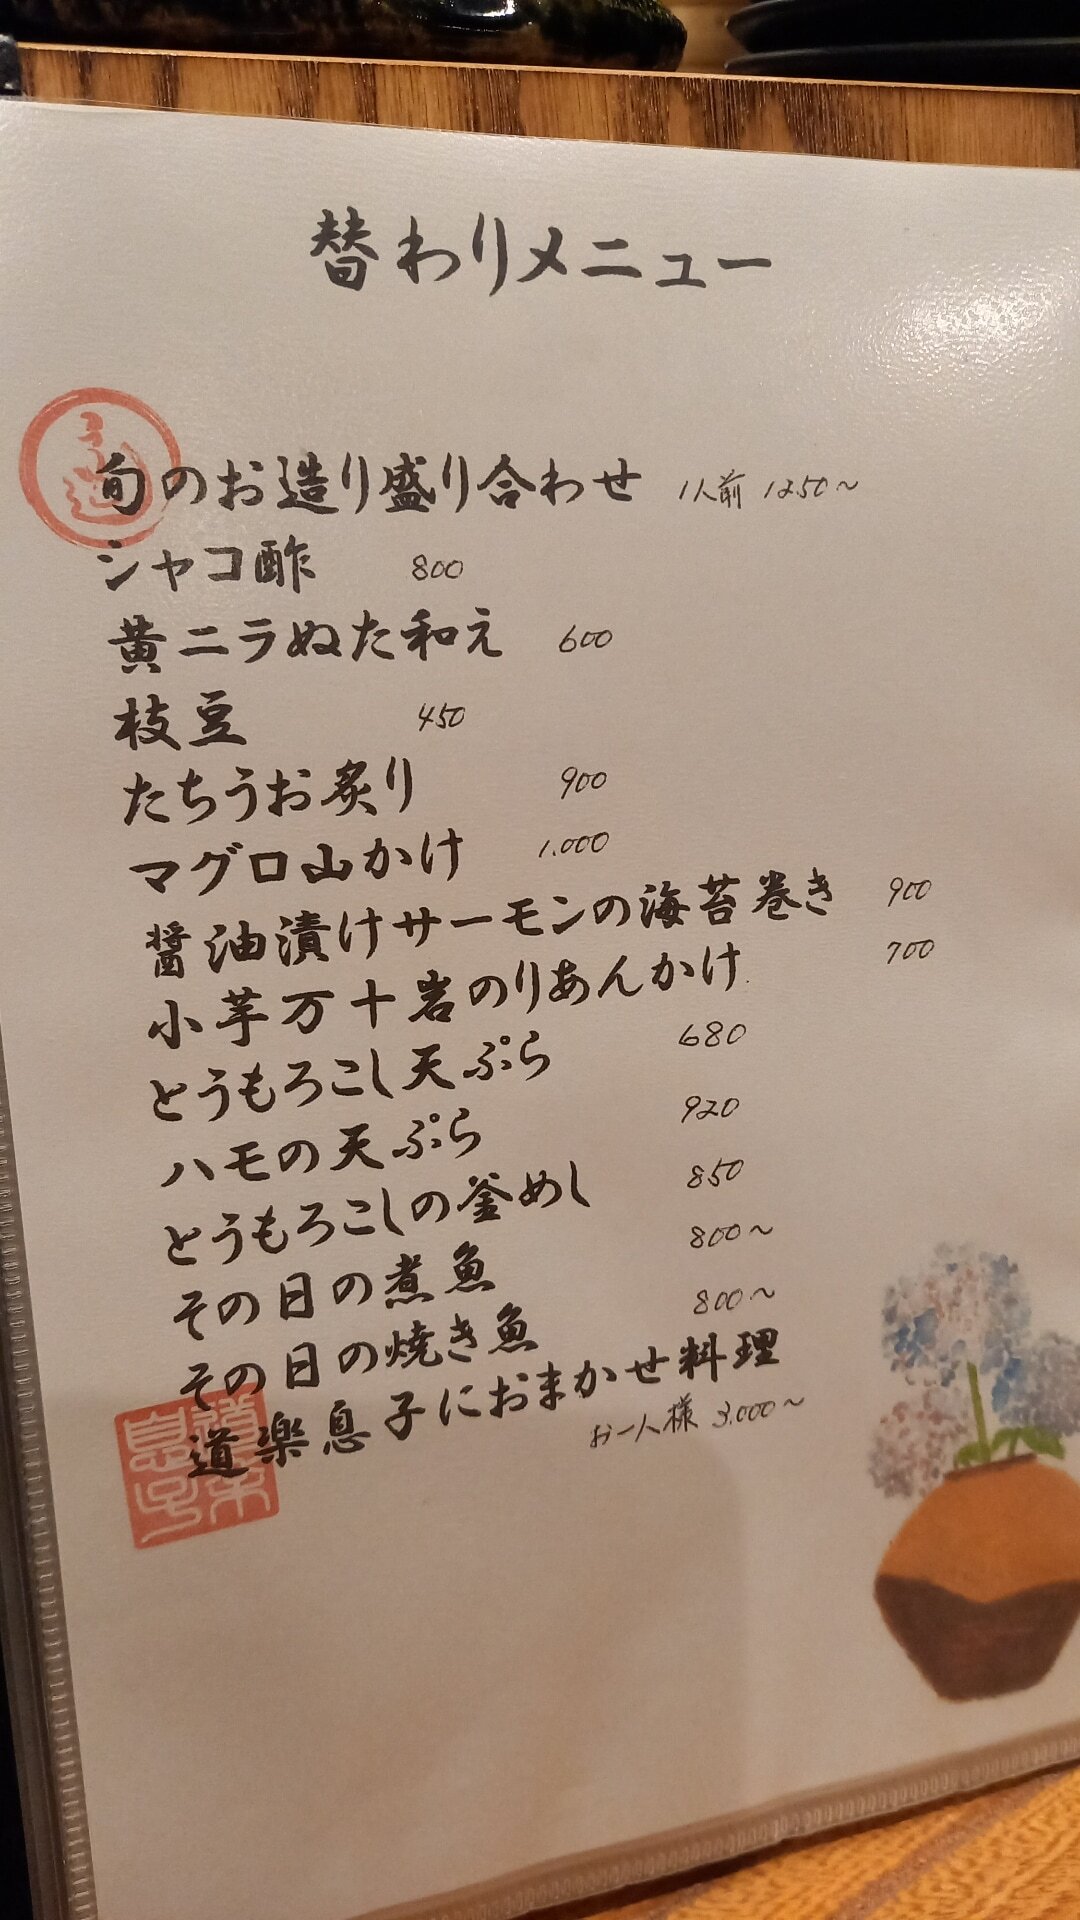 替わりメニュー
旬のお造り盛り合わせ 1人前 1250〜
シャコ酢 800
黄ニラぬた和え 600
枝豆 450
たちうお炙り 900
マグロ山かけ 1.000
醤油漬けサーモンの海苔巻き 900
小芋万十岩のりあんかけ 700
とうもろこし天ぷら 680
ハモの天ぷら 920
とうもろこしの釜めし 850
その日の煮魚 800〜
その日の焼き魚 800〜
道楽息子におまかせ料理
お一人様 3.000〜
道楽息子